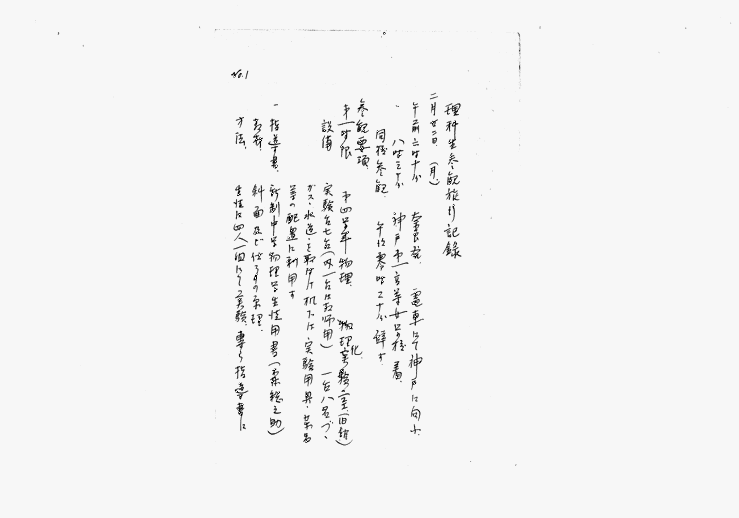 No.1
理科生参観旅行記録
二月廿二日 (月)
午前六時十分 奈良発、電車にて神戸に向ふ、
〃 八時三十分 神戸市第一高等女学校着、
同校参観、午後零時三十分辞す、
参観要項
第一時限 第四学年物理、物理化実験室(旧館)
設備 実験台七台(内一台は教師用) 一台八名づゝ
ガス、水道を取付け机下は、実験用具、薬品
等の配置に利用す
一 指導書、新制中学物理学生徒用書
教材、斜面及び仕事の原理、
方法、生徒は四人一組にて実験、専ら指導書に